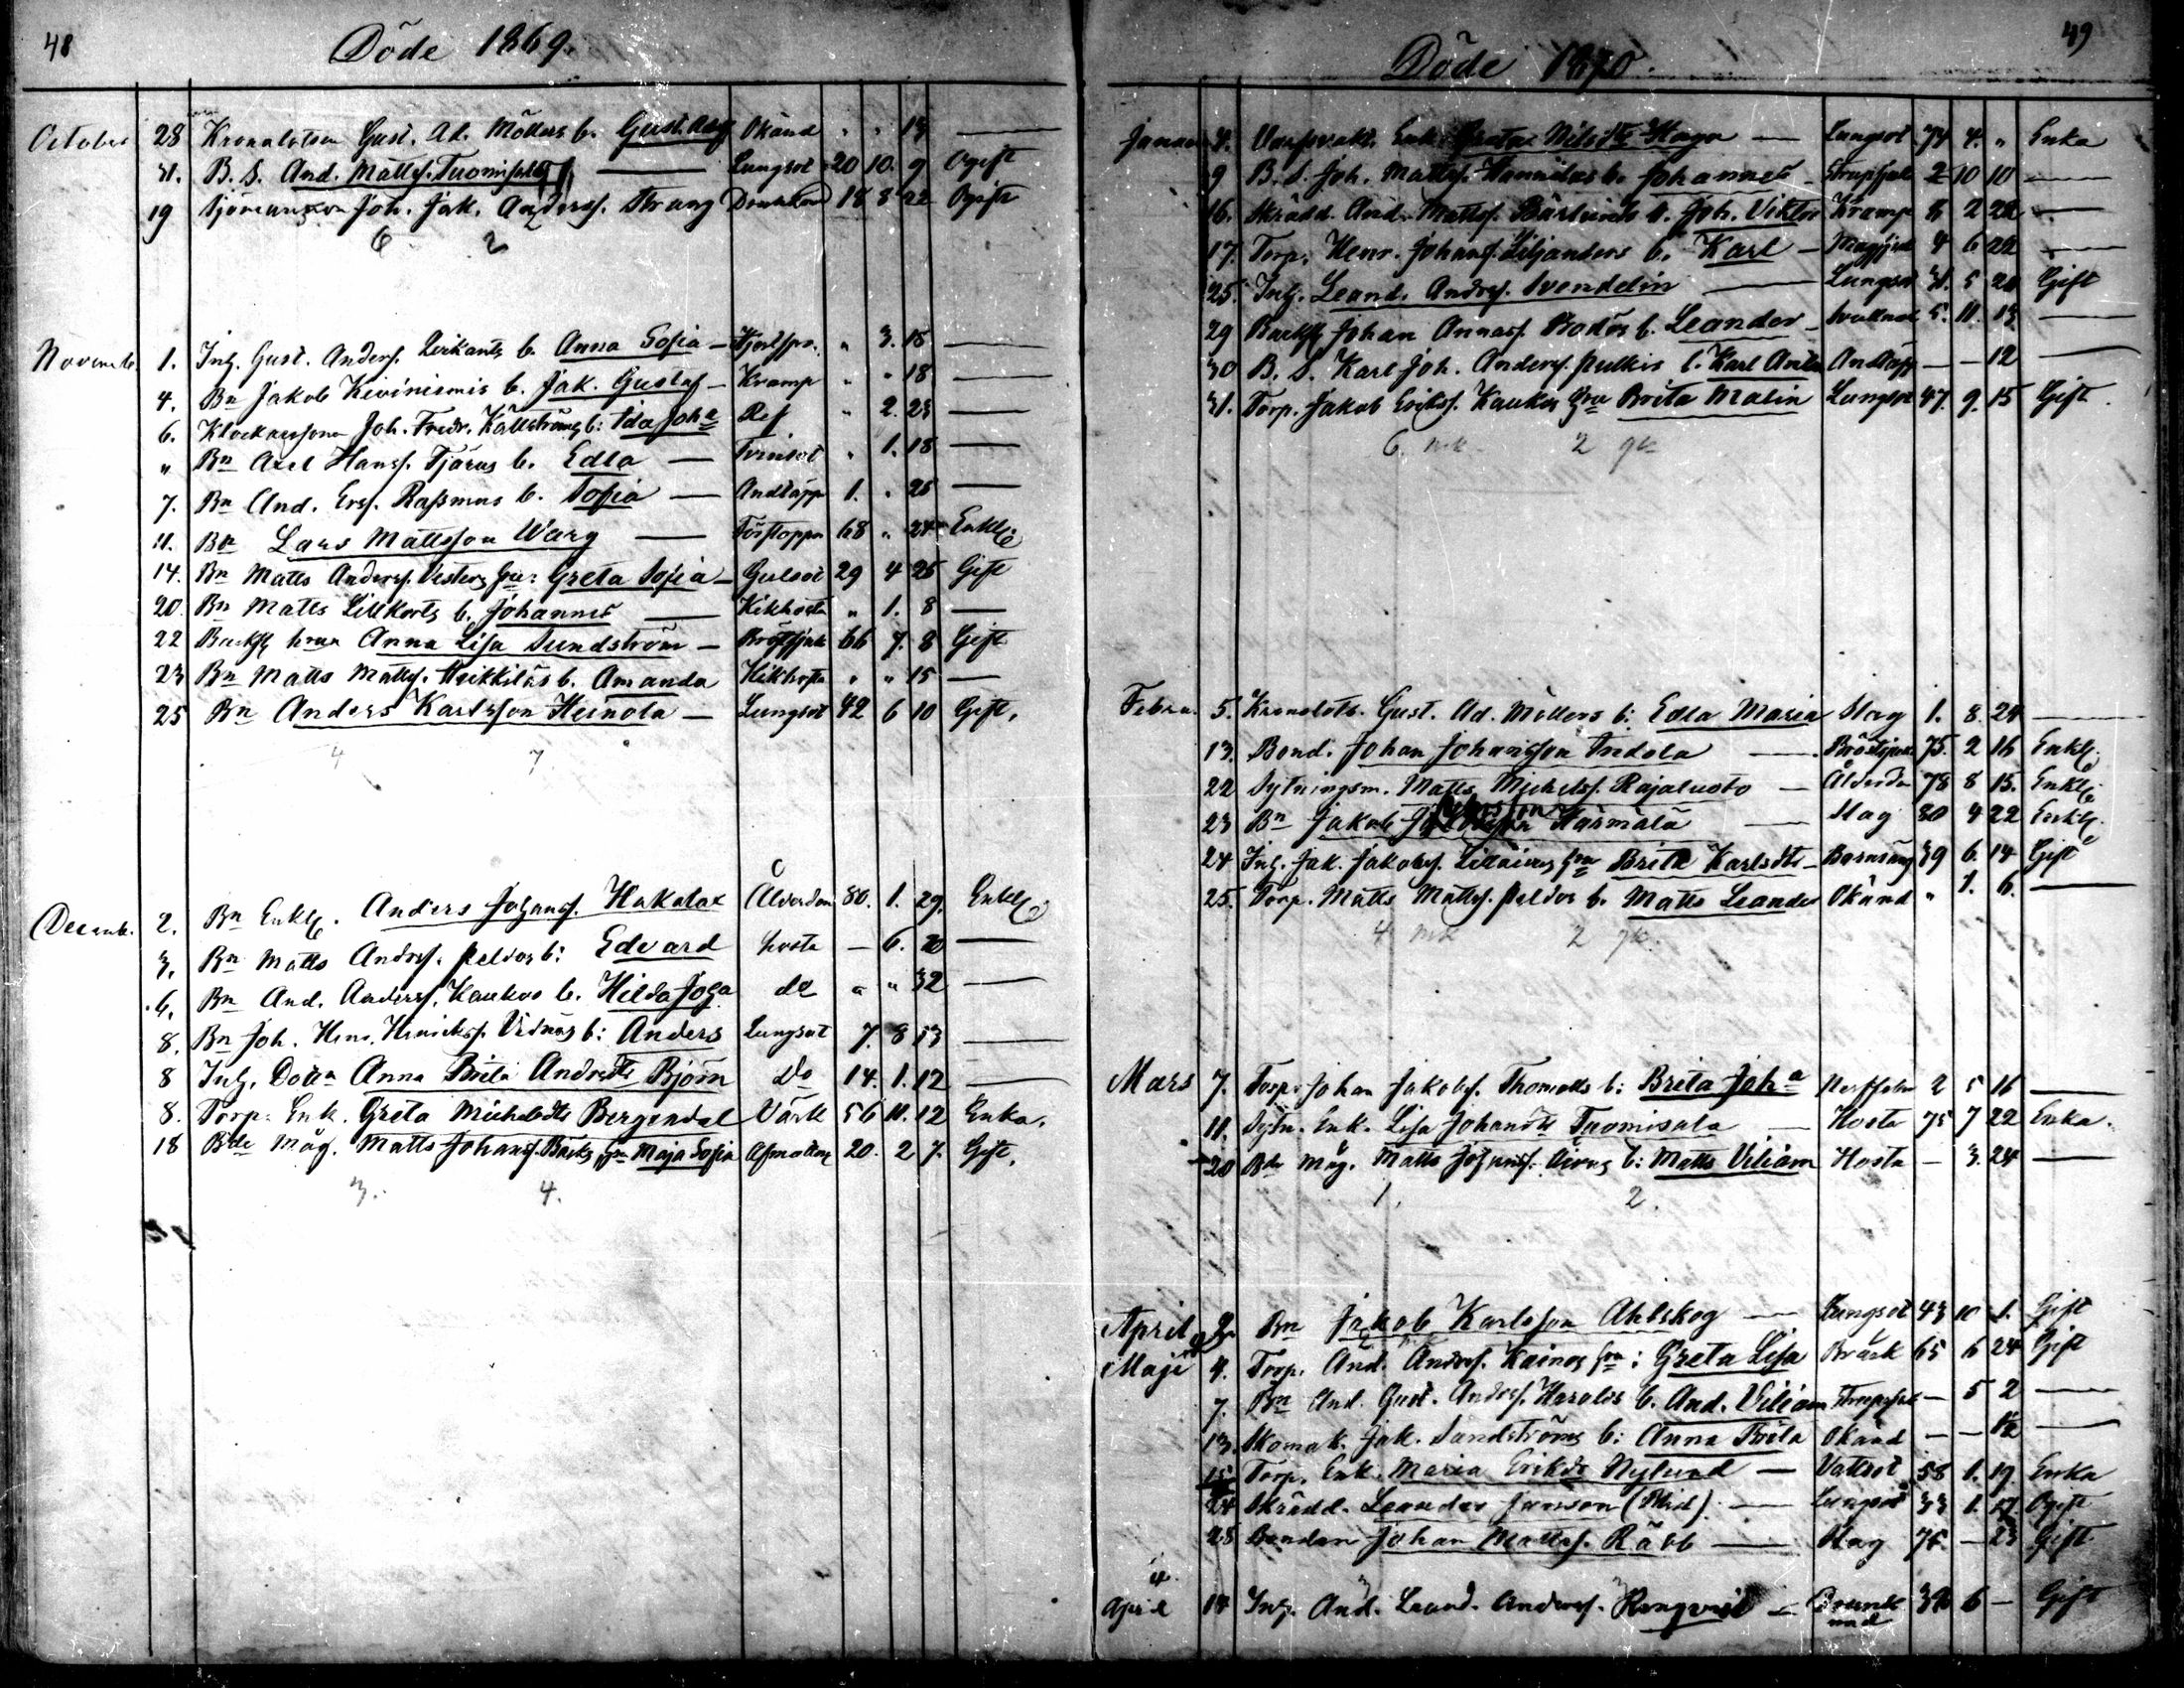 48
Döde 1869.
October 28 Kronolotsen Gust. Ad. Möllers b. Gust. Adolf Okänd " " 13 —
31. B. S. And. Mattss. Tuomisalo — Lungsot 20 10. 9 Ogift
19 Sjömannen Joh. Jak. Anderss. Strang Drunknad 18 8 22 Ogift
6 2
Novemb. 1. Inh. Gust. Anderss. b. Anna Sofia — " 3. 15 —
4. Bn Jakob Kiviniemis b. Jak. Gustaf — Kramp " " 18 —
6. Joh. Fredr. Källströms b: Ida Joha Ref " 2. 23 —
" Bn Axel Hanss. Tjärus b. Edla — Tvinsot " 1. 18 —
7. Bn And. Erss. Rassmus b. Sofia — Andtäppa 1. " 25 —
11. Bn Lars Mattsson Warg — Förstoppn 68 " 24 Enkl.
14. Bn Matts Anderss. Vesters hu: Greta Sofia — Gulsot 29 4 25 Gift
20. Bn Matts Lillkorts b. Johannes — Kikhosta " 1. 8 —
22 Backst. hrun Anna Lisa Sundström — Bröstsjuk 66 7. 8 Gift
23 Bn Matts Mattss. Heikkiläs b. Amanda Kikhosta " " 15 —
25 Bn Anders Karlsson Heinola — Lungsot 42 6 10 Gift.
4 7
Decemb. 2. Bn Enkl. Anders Johanss. Hakalax Ålderdom 80. 1. 29. Enkl.
3. Bn Matts Anderss. Peldos b: Edvard hosta — 6. 20 —
6. Bn And. Anderss. Kaukos b. Hilda Joha do " " 32 —
8. Bn Joh. Henr. Henrikss. Vidnäs b: Anders Lungsot 7. 8 13 —
8 Inh. Dottn Anna Brita Andersdtr Björn do 14. 1. 12 —
8. Torp. Enk. Greta Michelsdtr Bergendal Värk 56 11. 12 Enka.
18 Bde Måg. Matts Johanss. Backs hu Maja Sofia 20. 2 7. Gift.
3. 4.
49
Döde 1870.
Januar 4. Enk. Greta Nilsdtr Haga — Lungsot 74 4. " Enka
9 B. S. Joh. Mattss. Hannilas b. Johannes — Strupsjuk 2 10 10 —
16. Skrädd. And. Mattss. Bärlunds b. Joh. Viktor Kramp 8 2 22 —
17. Torp. Henr. Johanss. Liljanders b. Karl — Magsjuk 4 6 22 —
25. Inh. Leand. Anderss. Svendelin — Lungsot 31. 5 20 Gift
29 Backst. Johan Annass. Bodös b. Leander — 5. 11. 13 —
30 B. S. Karl Joh. Anderss. Pulkis b. Karl Anton Andtäpp — — 12 —
31. Torp. Jakob Erikss. Kaukos hru Brita Malin Lungsot 47. 9. 15 Gift.
6. mk 2 qk
Febru. 5. Kronolots. Gust. Ad. Möllers b: Edla Maria Slag 1. 8. 24 —
13. Bond. Johan Johansson Indola — Bröstsjuk 75. 2 16 Enkl.
22 Sytningsm. Matts Michelss. Rajaluoto — Ålderdo 78 8 15. Enkl.
23 Bn Jakob Härmälä — Slag 80 4 22 Enkl.
24 Inh. Jak. Jakobss. hru Brita Karlsdtr — Barnsäng 39 6. 14 Gift
25. Torp. Matts Mattss. Peldos b. Matts Leander Okänd " 1. 6. —
4 mk 2 qk.
Mars 7. Torp. Johan Jakobss. Thomatts b: Brita Joha 2 5 16 —
11. Sytn. Enk. Lisa Johansdtr Tuomisala — Hosta 75 7 22 Enka.
20 Bde Måg. Matts Johanss. b: Matts Viliam Hosta — 3. 24 —
1. 2.
April 2. Bn Jakob Karlsson Ahlskog — Lungsot 43 10 1. Gift
Maji 4. Torp. And. Anderss. Kainos hu: Greta Lisa Bråck 65 6 24 Gift
7. Bn And. Gust. Anderss. Haralds b. And. Viliam Strupsjuk — 5 2 —
13. Skomak. Jak. Sandströms b: Anna Brita Okänd — — 1/2 —
15 Torp. Enk. Maria Eriksdr Nylund — Vattsot 58 1. 19 Enka
24 Skrädd. Leander Jansson — Lungsot 33 1. 17 Ogift
28 Bonden Johan Mattss. Räbb — Slag 75 — 23 Gift
4.
April 14 Inh. And. Leand. Anderss. Rengvist — Drunknad 38 6 — Gift